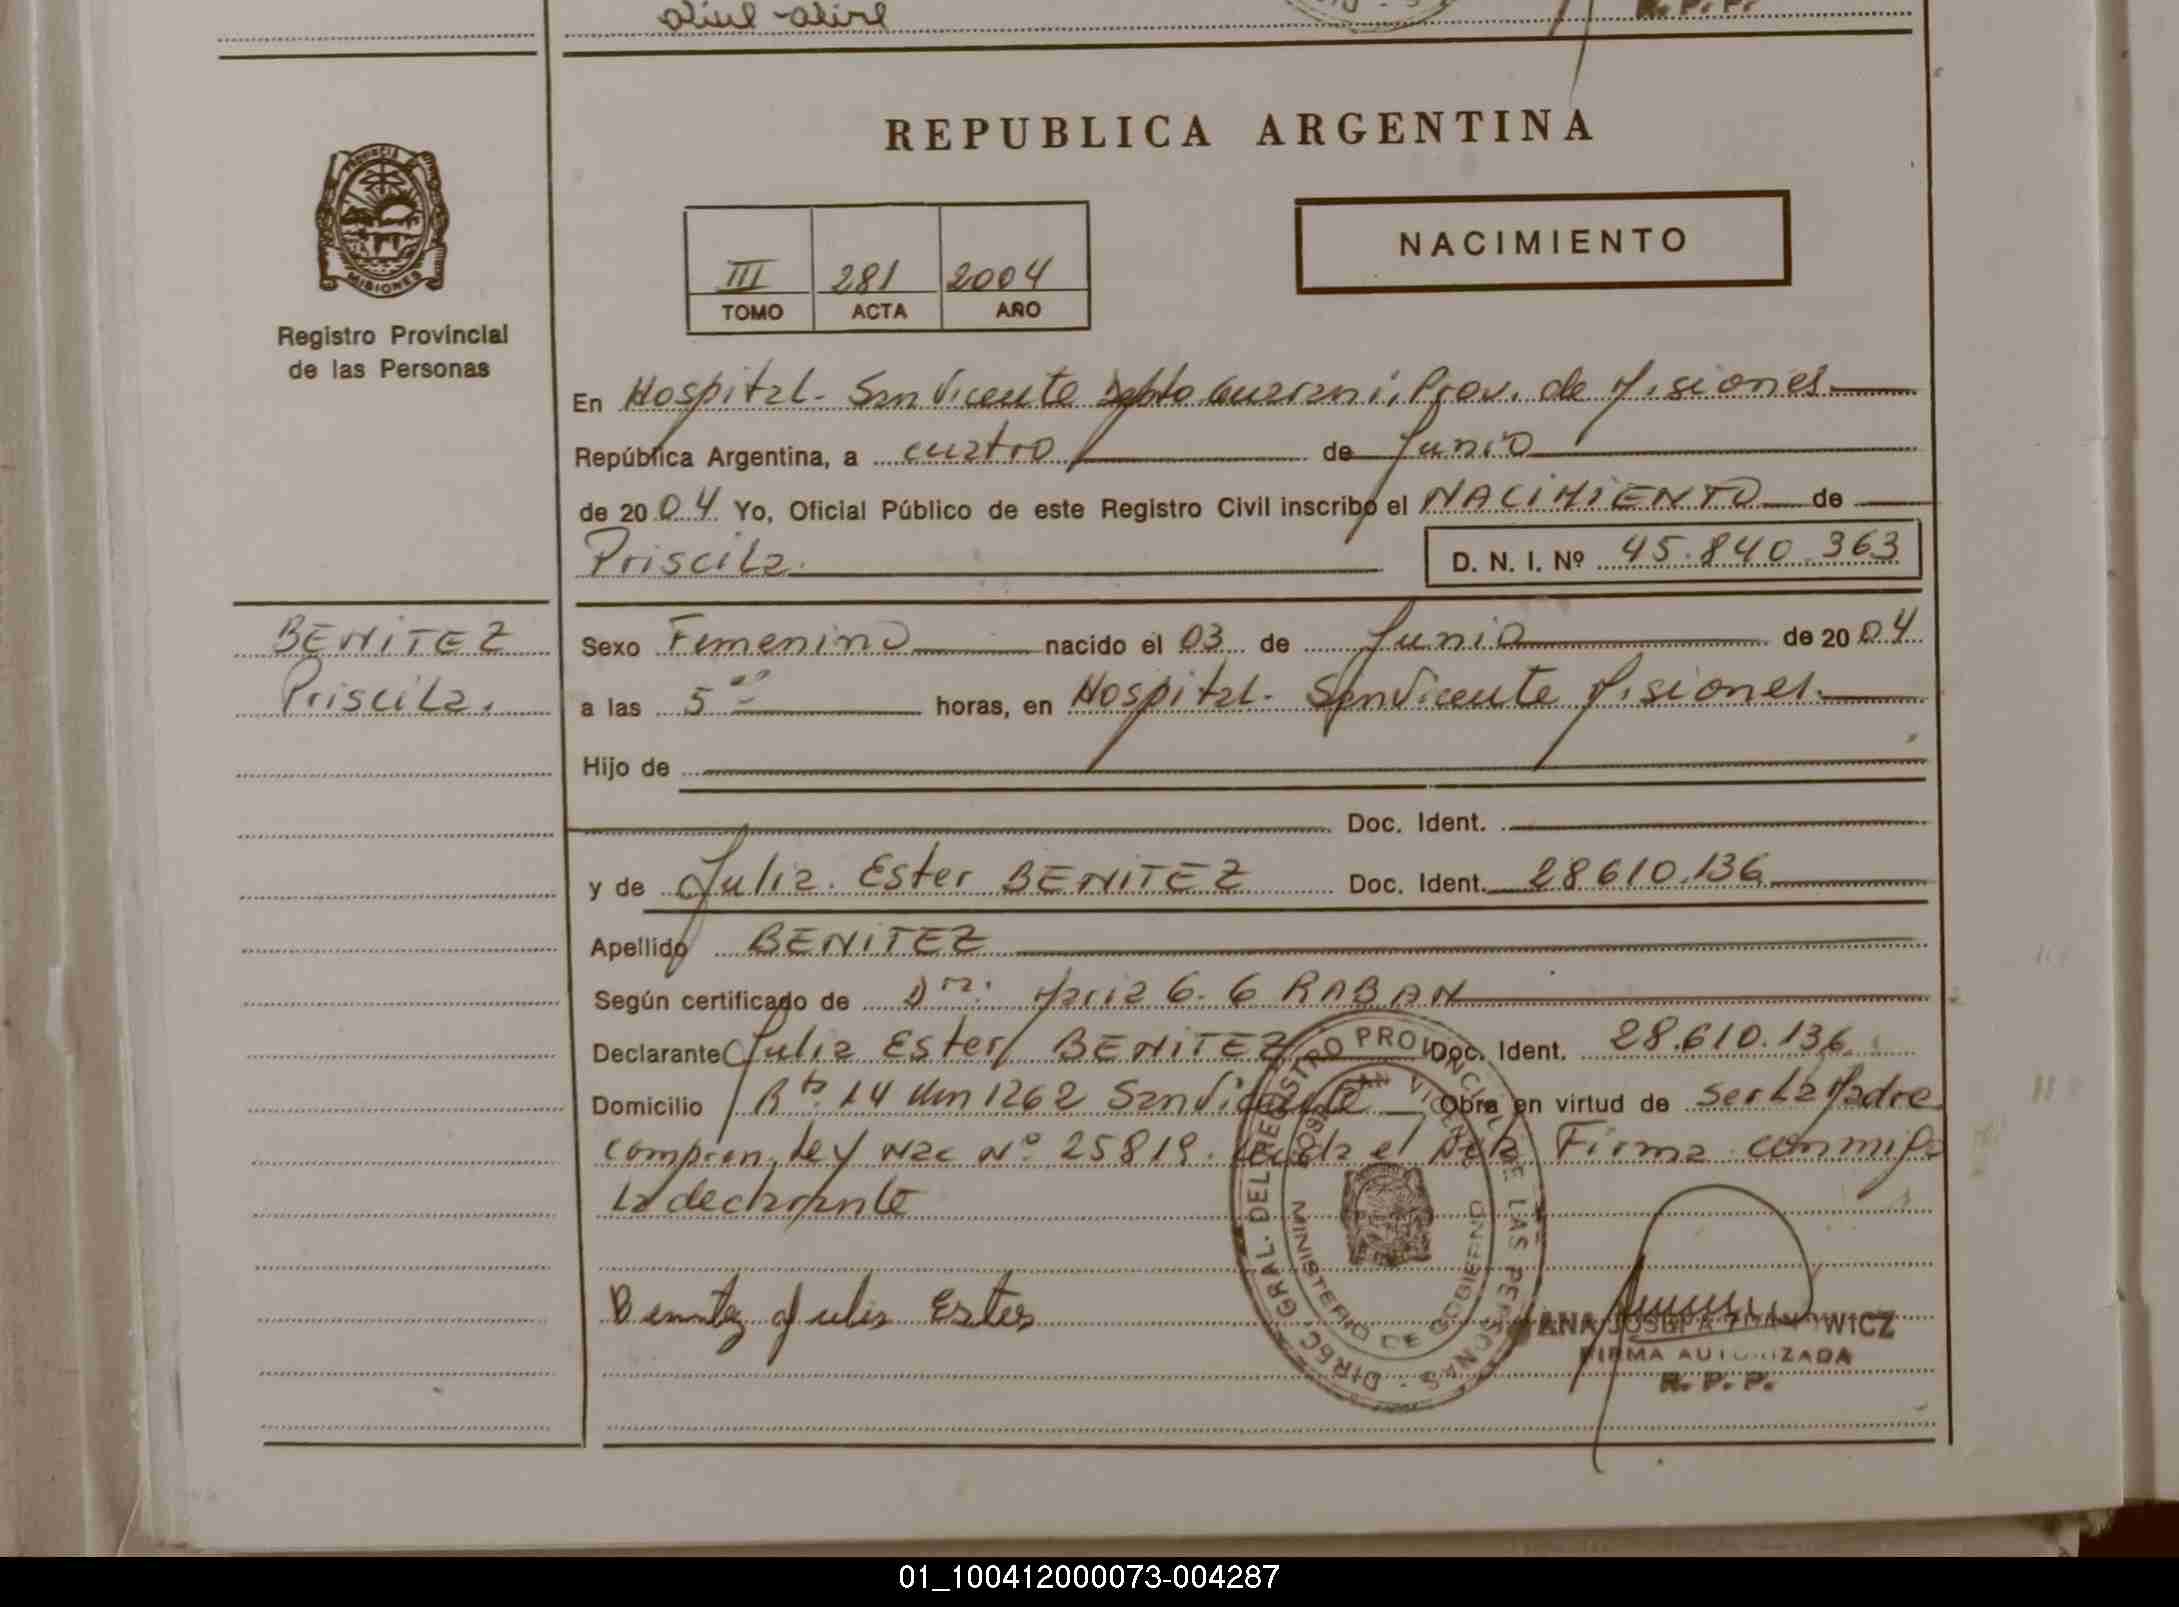 REPUBLICA ARGENTINA
PROVINCIA
MISIONES
Registro Provincial
de las Personas
III 281 2004
TOMO ACTA AÑO
NACIMIENTO
En Hospital - San Vicente Depto Guarani, Prov. de Misiones
República Argentina, a cuatro de Junio
de 2004 Yo, Oficial Público de este Registro Civil inscribo el NACIMIENTO de
Priscila. D. N. I. Nº 45.840.363
BENITEZ
Priscila.
Sexo Femenino nacido el 03 de Junio de 2004
a las 5 00 horas, en Hospital - San Vicente Misiones.
Hijo de
Doc. Ident.
y de Julia Ester BENITEZ Doc. Ident. 28610.136
Apellido BENITEZ
Según certificado de Dra. Maria G. G RABAN
Declarante Julia Ester BENITEZ Doc. Ident. 28.610.136
Domicilio Rta. 14 Km 1262 San Vicente Obra en virtud de ser La Madre
compren. Ley Nac Nº 25819. el Firma conmigo
La declarante
Benitez Julia Ester
DIREC. GRAL. DEL REGISTRO PROVINCIAL DE LAS PERSONAS
MINISTERIO DE GOBIERNO
ANA JOSEFA
FIRMA AUTORIZADA
R. P. P.
01_100412000073-004287